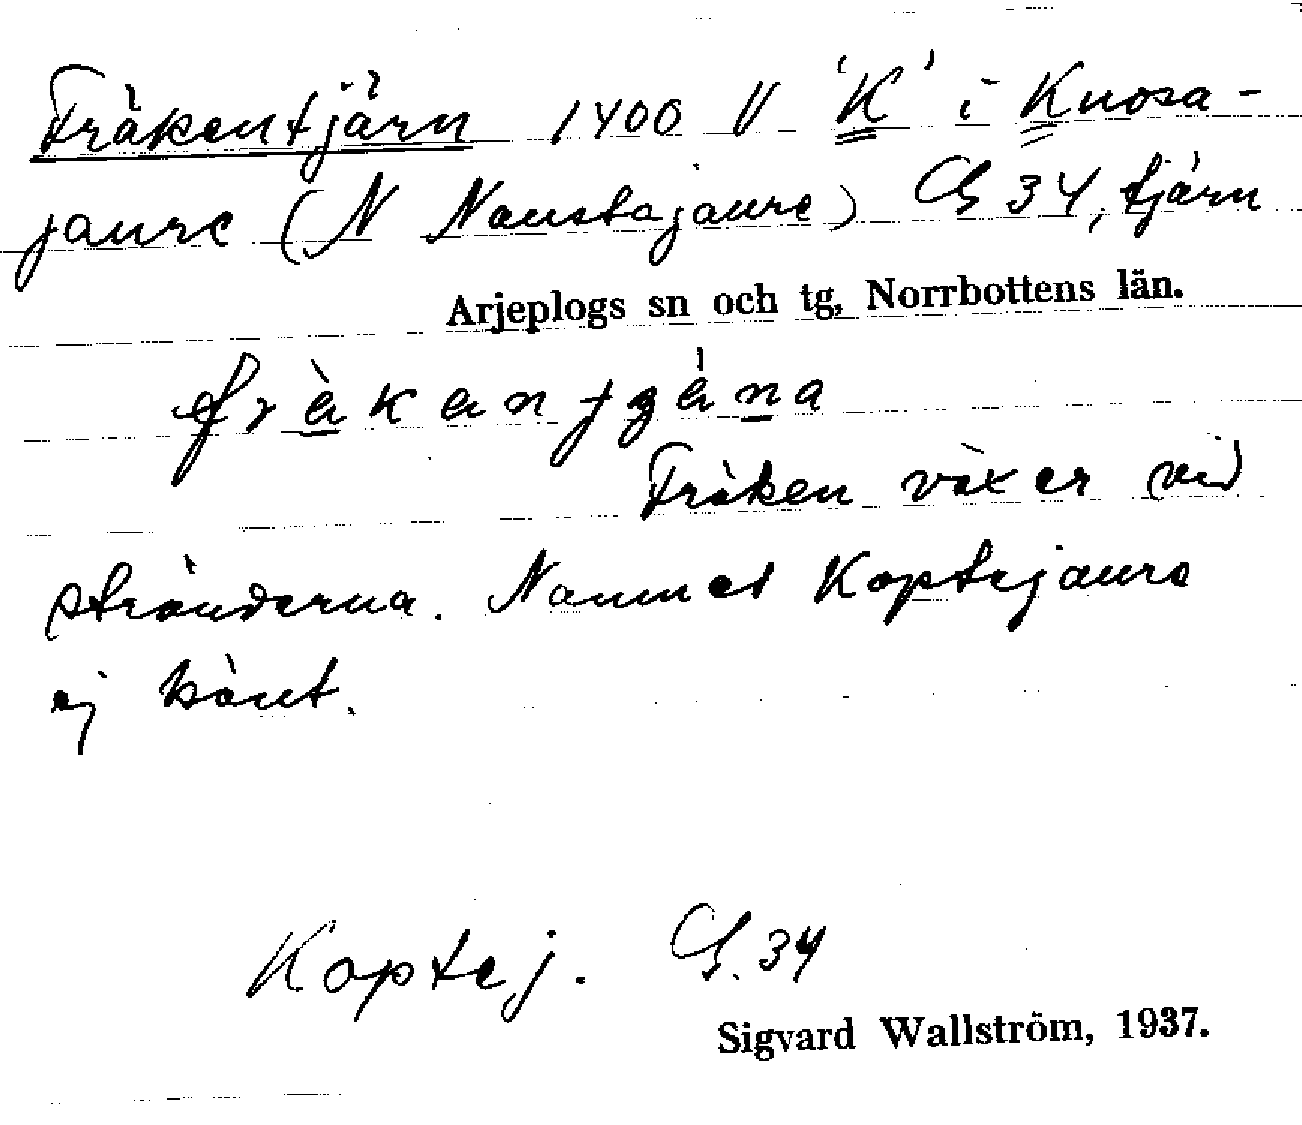 Fräkentjärn 1400 V 'K' i Knosa-
jaure (N Naustajaure) G 34, tjärn
Arjeplogs sn och tg, Norrbottens län.
Fräken växer vid
stränderna. Namnet Koptejaure
ej känt.
Koptej. G. 34
Sigvard Wallström, 1937.